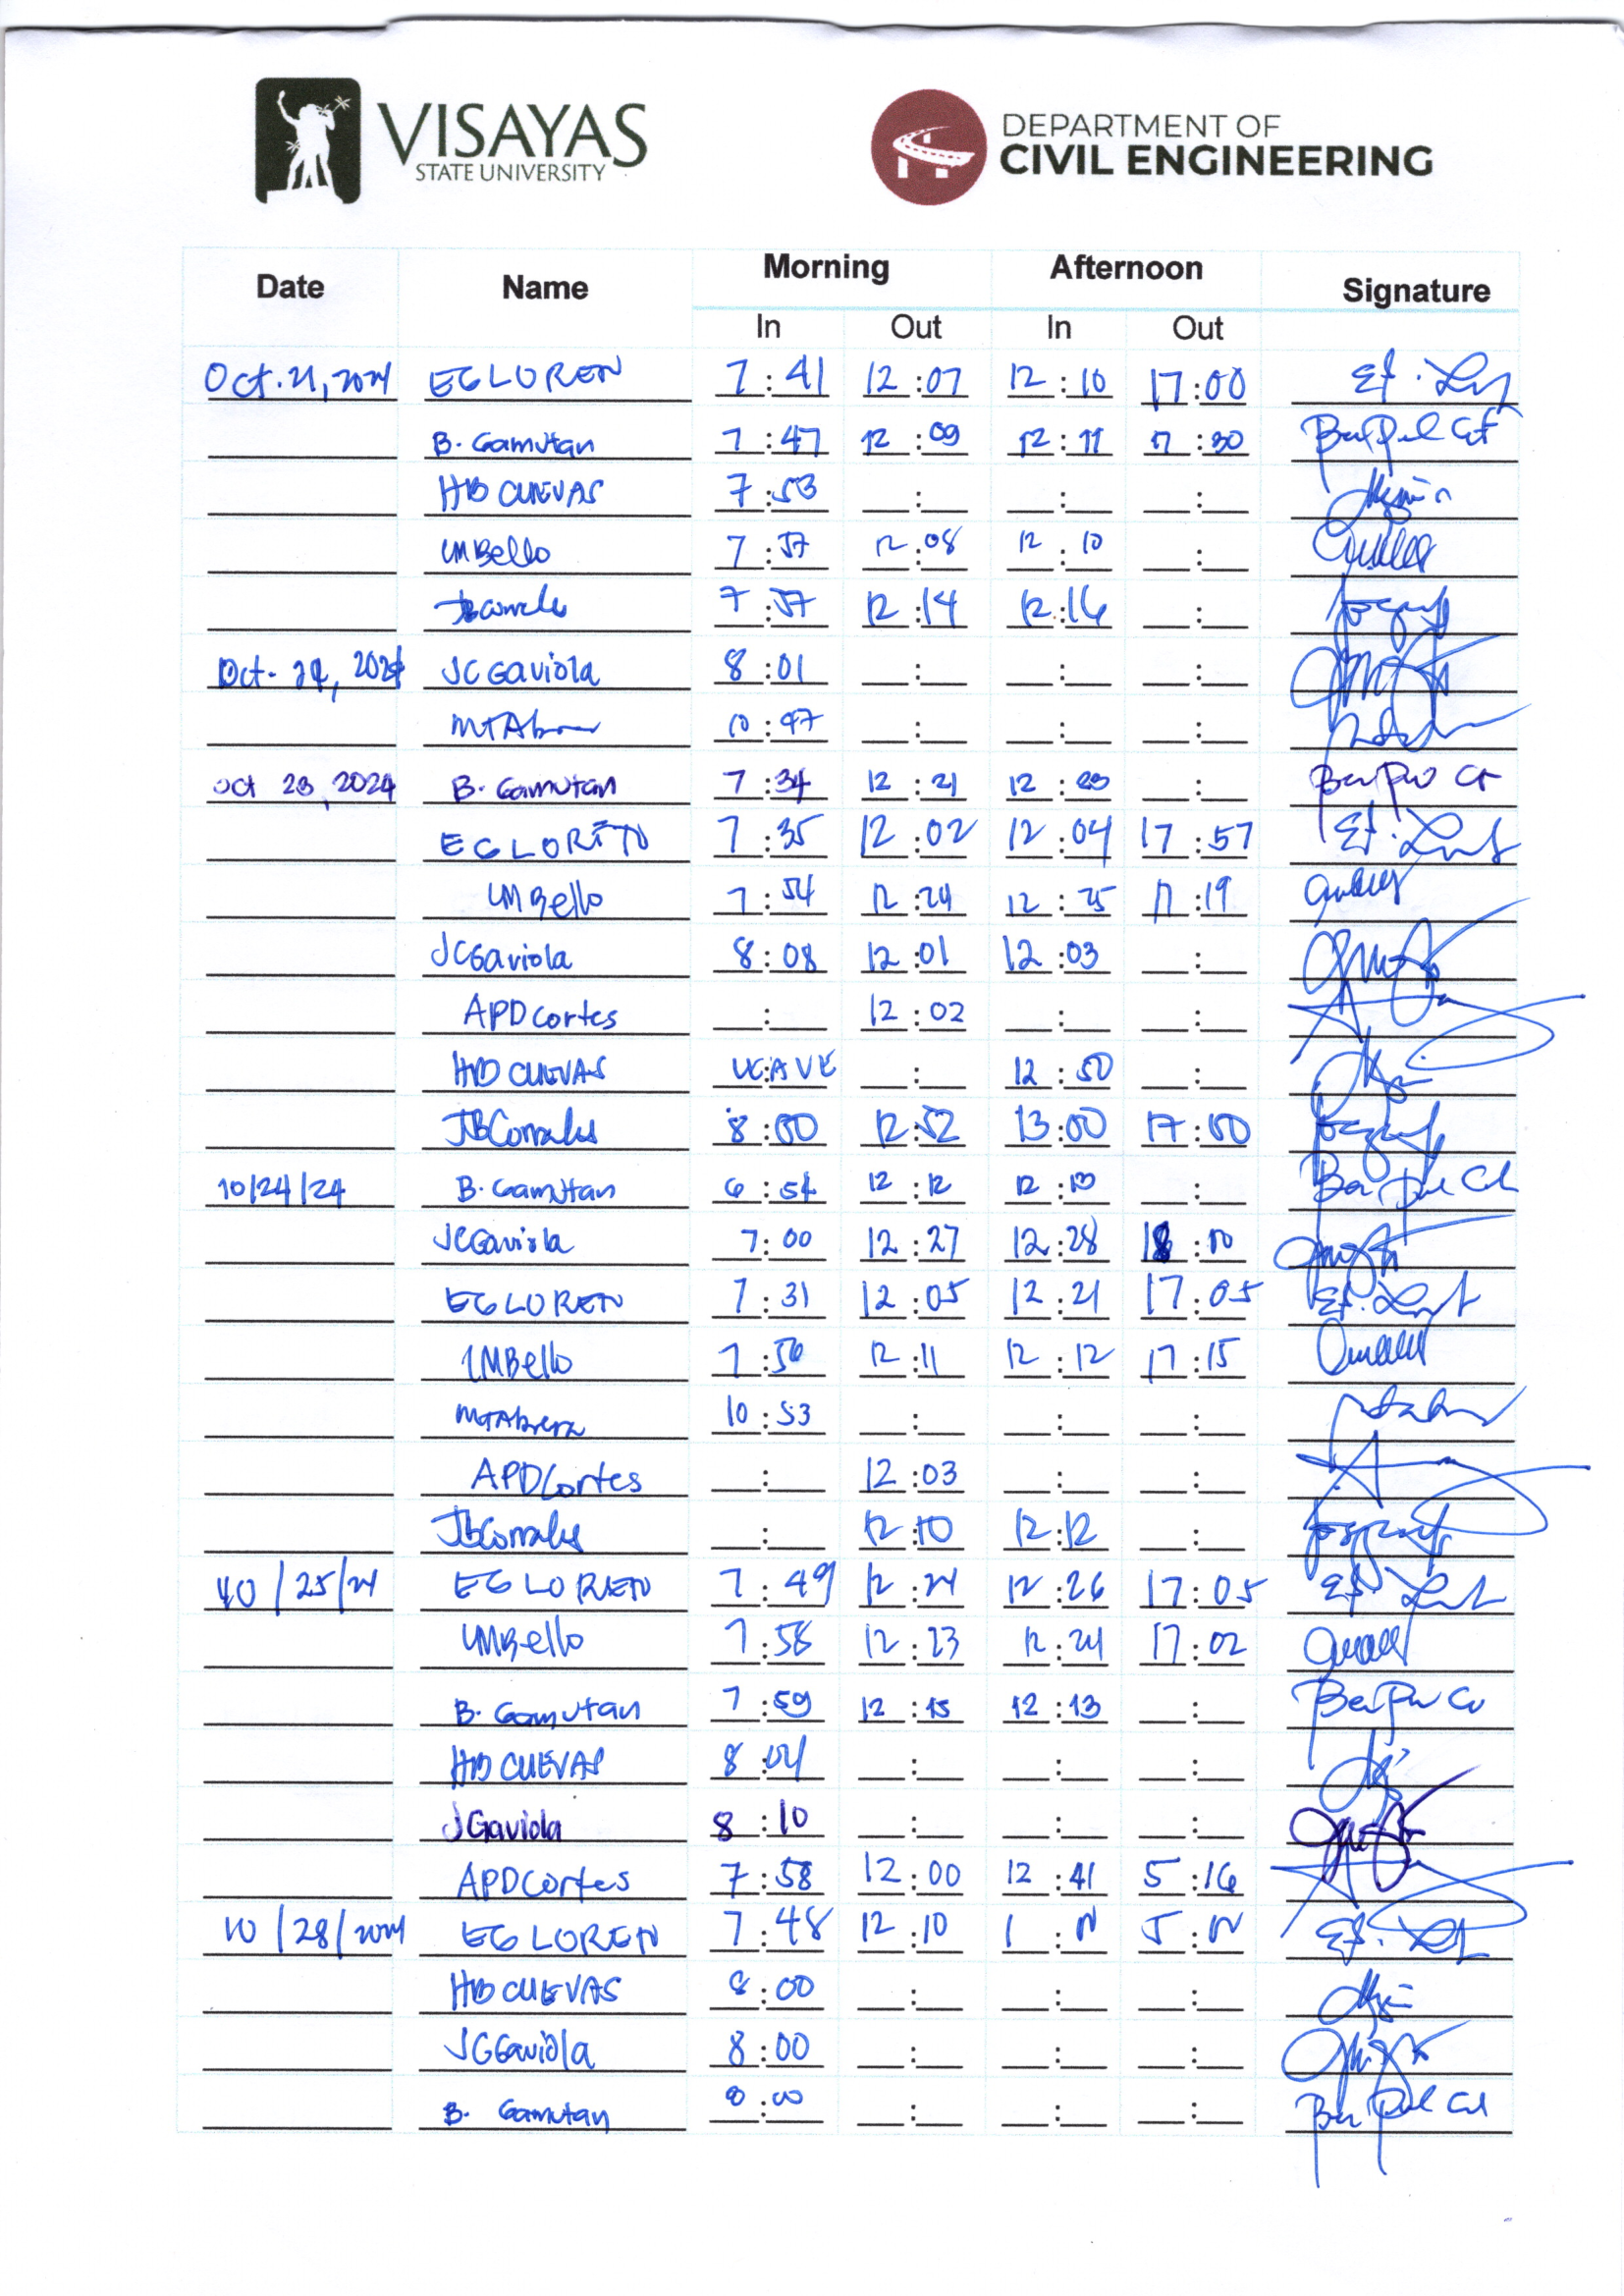 VISAYAS
STATE UNIVERSITY
DEPARTMENT OF
CIVIL ENGINEERING
Date Name Morning Afternoon Signature
In Out In Out
Oct. 21, 2024 EGLOREN 7:41 12:07 12:10 17:00
B. Gamutan 7:47 12:09 12:11 17:30
HB CUEVAS 7:53 : : :
LMBello 7:57 12:08 12:10 :
7:57 12:14 12:16 :
Oct. 24, 2024 JCGaviola 8:01 : : :
10:47 : : :
Oct 23, 2024 B. Gamutan 7:34 12:21 12:23 :
EGLOREN 7:35 12:02 12:04 17:57
LMBello 7:54 12:24 12:25 17:19
JCGaviola 8:08 12:01 12:03 :
APDCortes : 12:02 : :
HB CUEVAS LEAVE : 12:50 :
JBCorrales 8:00 12:52 13:00 17:00
10/24/24 B. Gamutan 6:54 12:12 12:13 :
JCGaviola 7:00 12:27 12:28 18:10
EGLOREN 7:31 12:05 12:21 17:05
LMBello 7:56 12:11 12:12 17:15
MTAbrera 10:53 : : :
APDCortes : 12:03 : :
JBCorrales : 12:10 12:12 :
10/25/24 EGLOREN 7:49 12:24 12:26 17:05
LMBello 7:58 12:23 12:24 17:02
B. Gamutan 7:59 12:15 12:13 :
HB CUEVAS 8:04 : : :
JGaviola 8:10 : : :
APDCortes 7:58 12:00 12:41 5:16
10/28/2024 EGLOREN 7:48 12:10
HB CUEVAS 8:00 : : :
JCGaviola 8:00 : : :
B. Gamutan 8:00 : : :